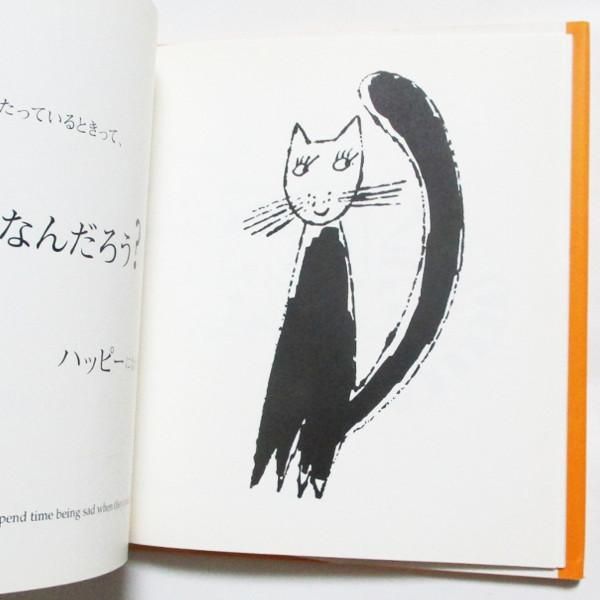 たっているときって、
なんだろう?
ハッピー
pend time being sad when the